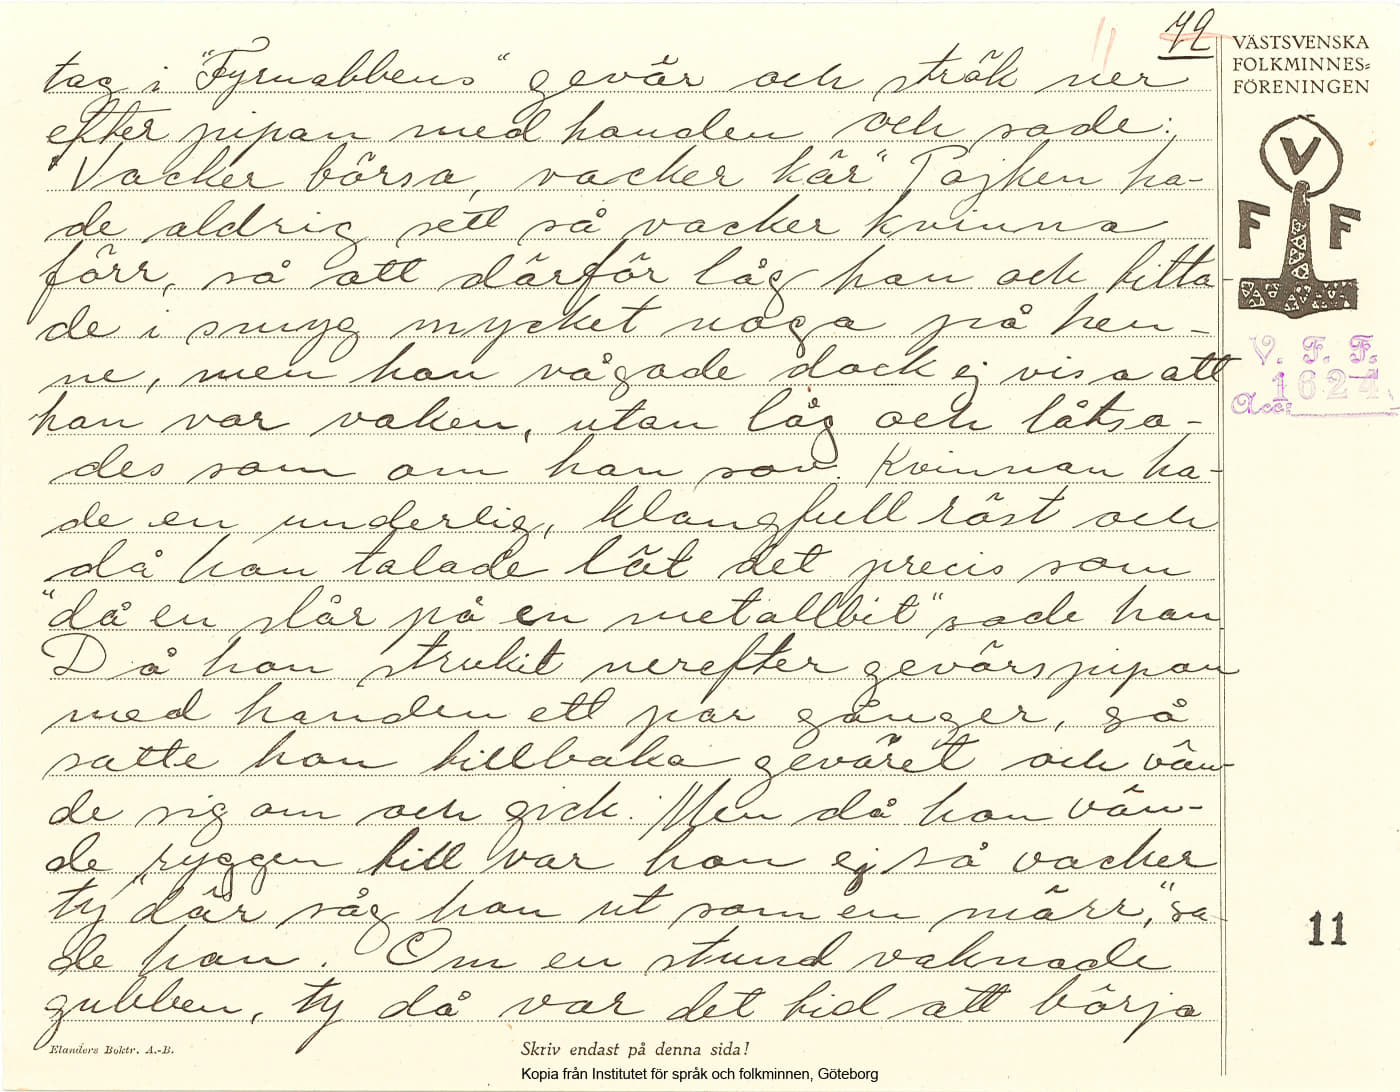 72
VÄSTSVENSKA
FOLKMINNES=
FÖRENINGEN
V
F F
V. F. F.
1624
Acc:
tag i "Fyrnabbens" gevär och strök ner
efter pipan med handen och sade:
"Vacker börsa, vacker kär". Pojken ha-
de aldrig sett så vacker kvinna
förr, så att därför låg han och titta-
de i smyg mycket noga på hen-
ne, men han vågade dock ej visa att
han var vaken, utan låg och låtsa-
des som om han sov. Kvinnan ha-
de en underlig, klangfull röst och
då hon talade lät det precis som
"då en slår på en metallbit" sade han
Då hon strukit nerefter gevärspipan
med handen ett par gånger, så
satte hon tillbaka geväret och vän-
de sig om och gick. Men då hon vän-
de ryggen till var hon ej så vacker
ty "där såg hon ut som en märr," sa-
de han. Om en stund vaknade
gubben, ty då var det tid att börja
11
Elanders Boktr. A.-B.
Skriv endast på denna sida!
Kopia från Institutet för språk och folkminnen, Göteborg